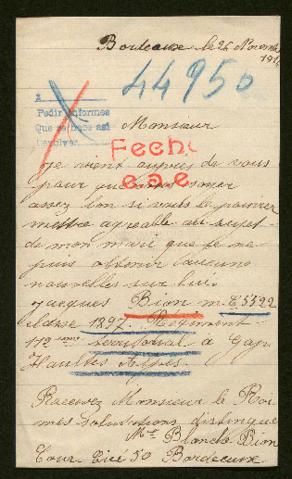 Bordeaux le 26 Novembre
191
44950
A
Pedir informes
Que se hace así
devolver.
Monsieur
Fecho
e.a.e.
Je vient auprès de vous
pour que vous soyer
assez bon si vous le pouvier
mettre agreable au sujet
de mon mari que je ne
puis obtenir aucune
nouvelles sur lui.
Jacques Bion m
classe 1897. Régiment
territorial a Gap
Hautes Alpes
Recevez Monsieur le Roi
mes salutations distingue
Me Blanche Bion
Cour 50 Bordeaux